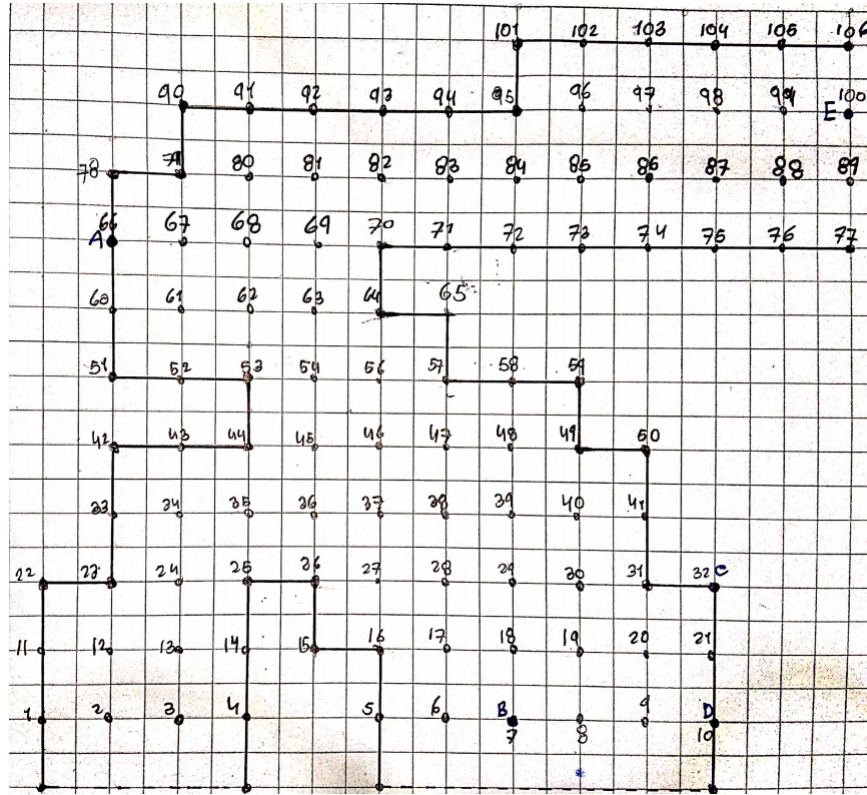 101 102 103 104 105 106
90 91 92 93 94 95 96 97 98 99 100
E
78 79 80 81 82 83 84 85 86 87 88 89
66 67 68 69 70 71 72 73 74 75 76 77
A
60 61 62 63 64 65
51 52 53 54 56 57 58 59
42 43 44 45 46 47 48 49 50
33 34 35 36 37 38 39 40 41
22 23 24 25 26 27 28 29 30 31 32 C
11 12 13 14 15 16 17 18 19 20 21
1 2 3 4 5 6 B 9 D
7 8 10
*